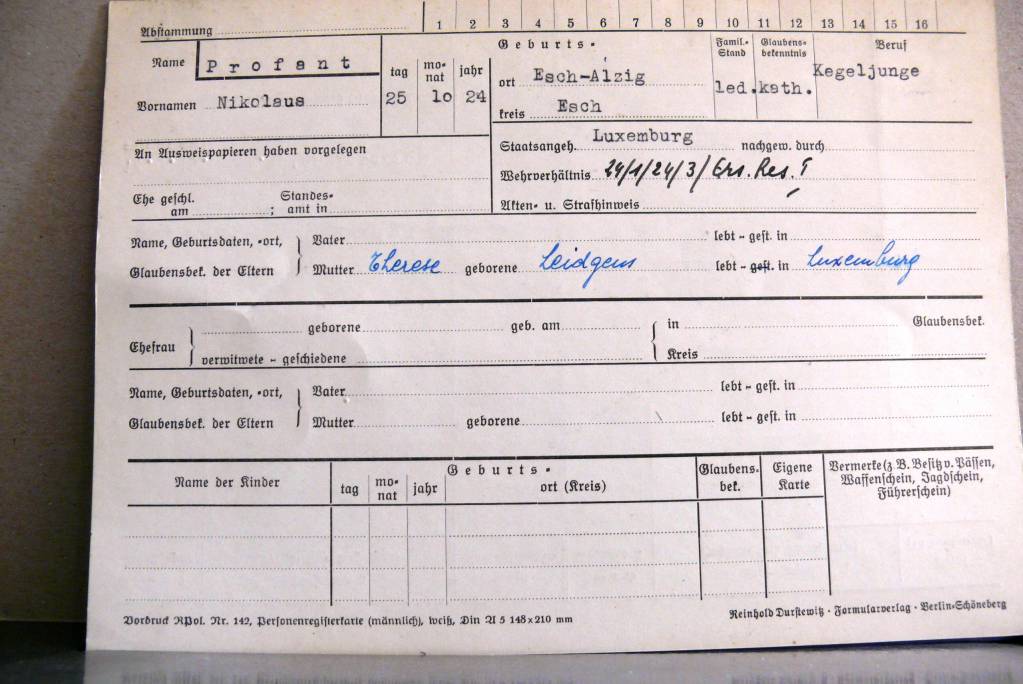 Abstammung 1 2 3 4 5 6 7 8 9 10 11 12 13 14 15 16
Name Profant
Vornamen Nikolaus
tag monat jahr
25 10 24
Geburts-
ort Esch-Alzig
kreis Esch
Famil.-Stand
led.
Glaubens-bekenntnis
kath.
Beruf
Kegeljunge
An Ausweispapieren haben vorgelegen
Staatsangeh. Luxemburg nachgew. durch
Wehrverhältnis 24/1/24/3/Ers. Res. I
Ehe geschl. am ; Standes-amt in
Akten- u. Strafhinweis
Name, Geburtsdaten, -ort,
Glaubensbek. der Eltern
Vater lebt - gest. in
Mutter Therese geborene Leidgens lebt - gest. in Luxemburg
Ehefrau
geborene geb. am in Glaubensbek.
verwitwete - geschiedene Kreis
Name, Geburtsdaten, -ort,
Glaubensbek. der Eltern
Vater lebt - gest. in
Mutter geborene lebt - gest. in
Name der Kinder
Geburts-
tag monat jahr ort (Kreis)
Glaubens-bek.
Eigene Karte
Vermerke (z. B. Besitz v. Pässen,
Waffenschein, Jagdschein,
Führerschein)
Vordruck RPol. Nr. 142, Personenregisterkarte (männlich), weiß, Din A 5 148x210 mm
Reinhold Durstewitz · Formularverlag · Berlin-Schöneberg